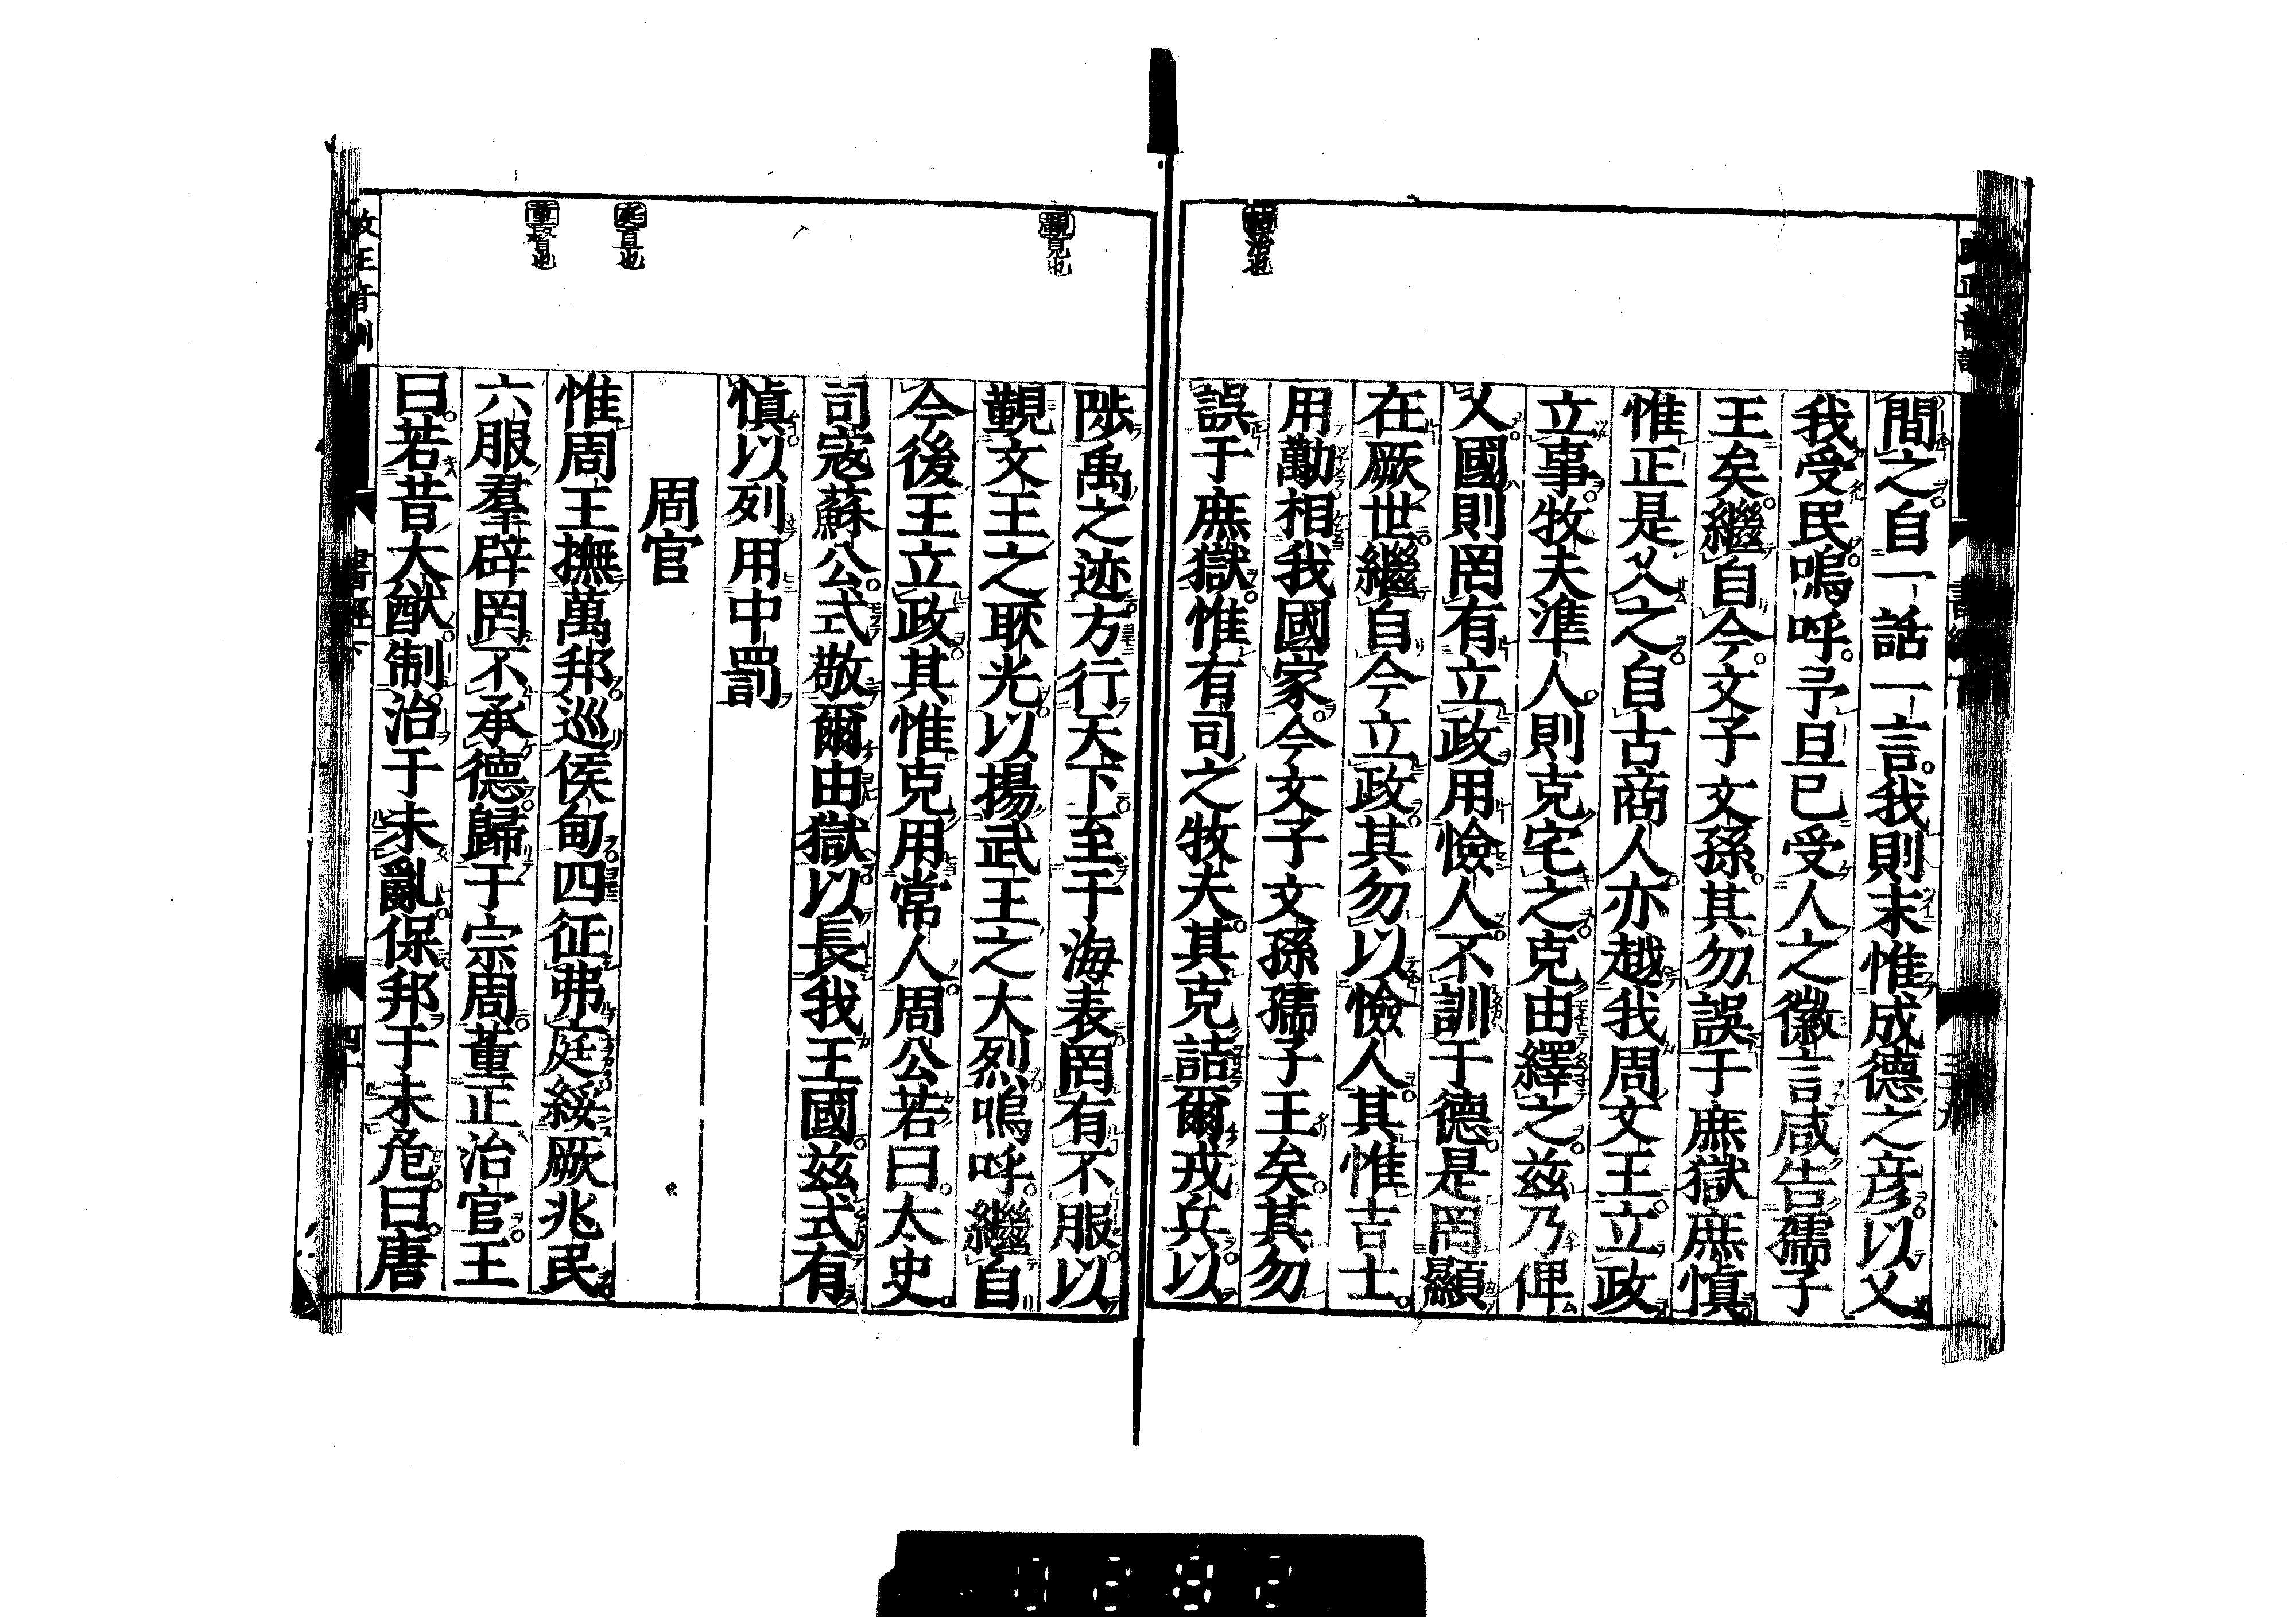 間之自一話一言我則末惟成德之彥以乂
我受民嗚呼予旦已受人之徽言咸告孺子
王矣繼自今文子文孫其勿誤于庶獄庶慎
惟正是乂之自古商人亦越我周文王立政
立事牧夫準人則克宅之克由繹之茲乃俾
乂國則罔有立政用憸人不訓于德是罔顯
在厥世繼自今立政其勿以憸人其惟吉士
用勱相我國家今文子文孫孺子王矣其勿
誤于庶獄惟有司之牧夫其克詰爾戎兵以
詰治也
陟禹之迹方行天下至于海表罔有不服以
覲文王之耿光以揚武王之大烈嗚呼繼自
今後王立政其惟克用常人周公若曰太史
司寇蘇公式敬爾由獄以長我王國茲式有
慎以列用中罰
周官
惟周王撫萬邦巡侯甸四征弗庭綏厥兆民
六服羣辟罔不承德歸于宗周董正治官王
曰若昔大猷制治于未亂保邦于未危曰唐
覲見也
庭直也
董督也
改正音訓
書經下
四十